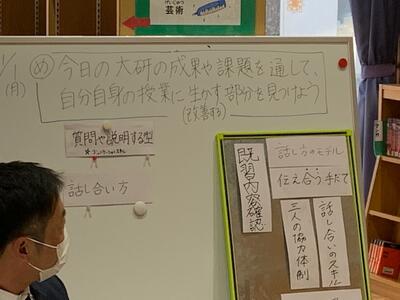 げいじゅつ
芸術
1/1
(月)
め 今日の大研の成果や課題を通して、
自分自身の授業に生かす部分を見つけよう
(改善する)
質問や説明する型
話し合い方
既習内容確認
話し方のモデル
伝え合う手だて
三人の協力体制
話し合いのスキル